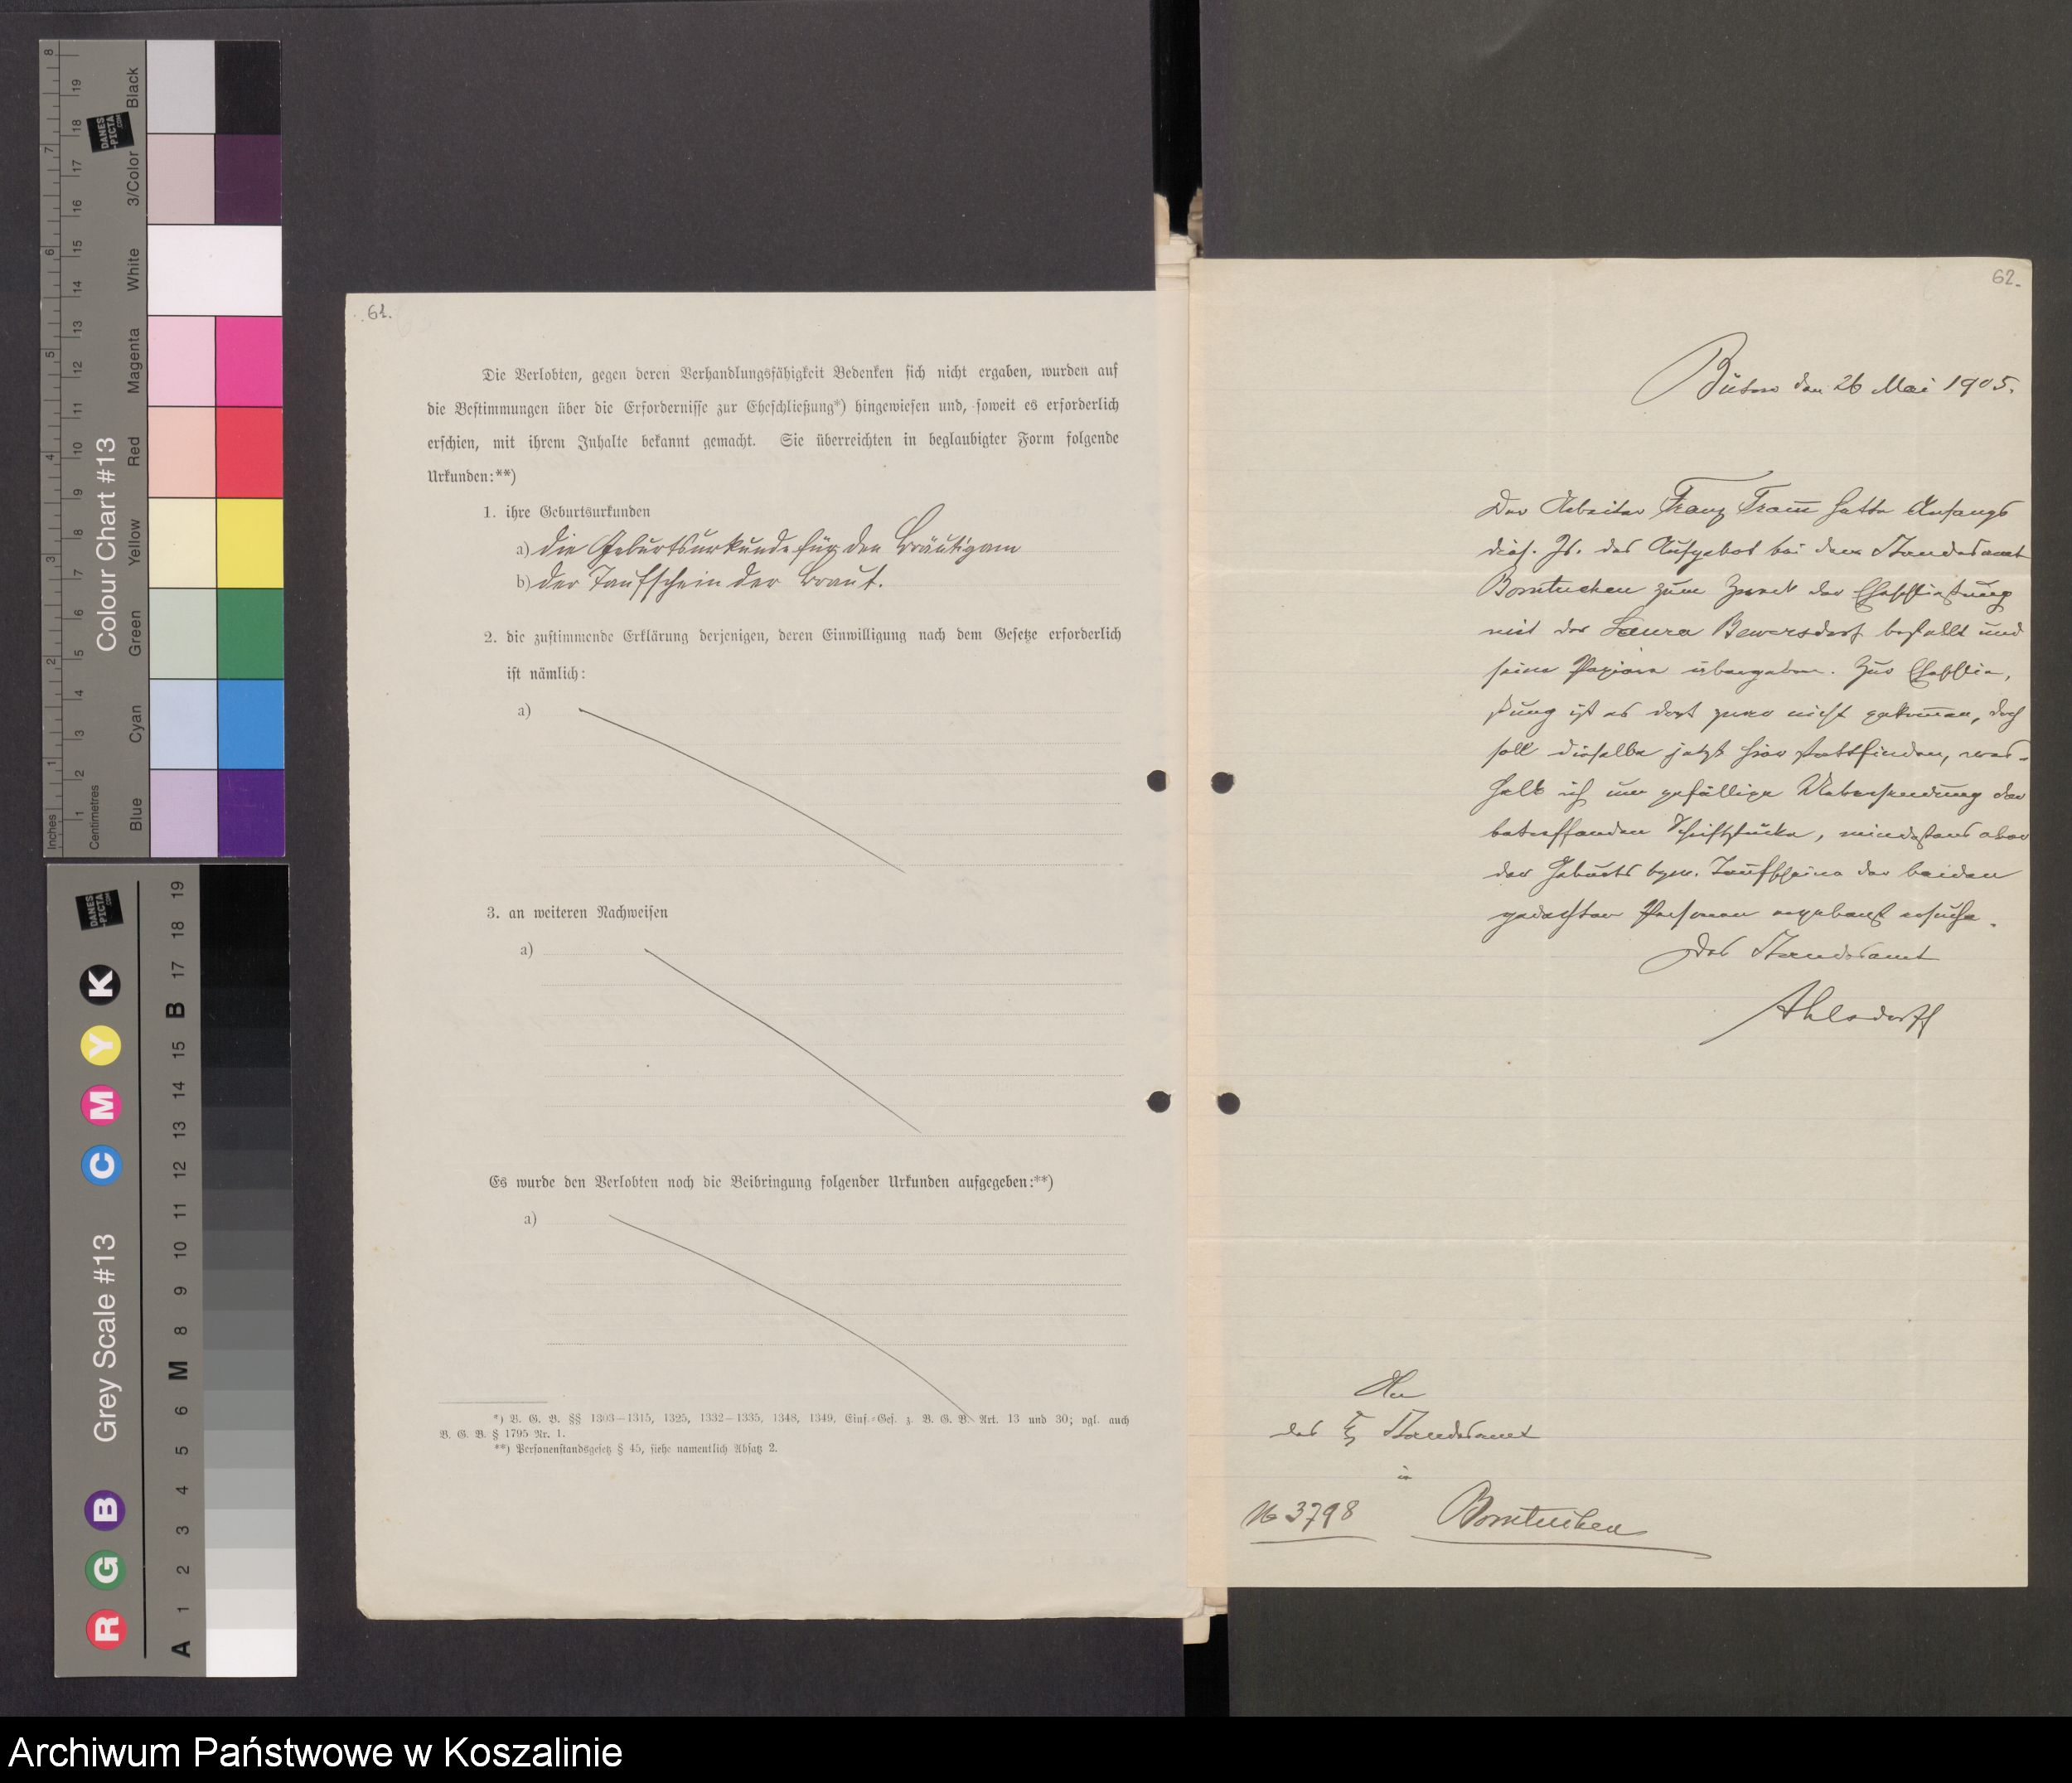 61.
Die Verlobten, gegen deren Verhandlungsfähigkeit Bedenken sich nicht ergaben, wurden auf
die Bestimmungen über die Erfordernisse zur Eheschließung*) hingewiesen und, soweit es erforderlich
erschien, mit ihrem Inhalte bekannt gemacht. Sie überreichten in beglaubigter Form folgende
Urkunden:**)
1. ihre Geburtsurkunden
a) die Geburtsurkunde für den Bräutigam
b) der Taufschein der Braut.
2. die zustimmende Erklärung derjenigen, deren Einwilligung nach dem Gesetze erforderlich
ist nämlich:
a)
3. an weiteren Nachweisen
a)
Es wurde den Verlobten noch die Beibringung folgender Urkunden aufgegeben:**)
a)
*) B. G. B. §§ 1303—1315, 1325, 1332—1335, 1348, 1349, Einf.=Ges. z. B. G. B. Art. 13 und 30; vgl. auch
B. G. B. § 1795 Nr. 1.
**) Personenstandsgesetz § 45, siehe namentlich Absatz 2.
62.
Bütow den 26 Mai 1905.
Der Arbeiter Franz Tram̅ hatte Anfangs
dies. Js. das Aufgebot bei dem Standesamt
Borntuchen zum Zweck der Eheschließung
mit der Laura Bewersdorf bestellt und
seine Papiere übergeben. Zur Eheschlie,
ßung ist es dort zwar nicht gekom̅en, doch
soll dieselbe jetzt hier stattfinden, wes-
halb ich um gefällige Uebersendung der
betreffenden Schriftstücke, mindestens aber
der Geburts bzw. Taufscheine der beiden
gedachten Personen ergebenst ersuche.
Das Standesamt
Ahlsdorff
An
das Standesamt
in
Borntuchen
No 3798
Inches
Centimetres
Colour Chart #13
Blue
Cyan
Green
Yellow
Red
Magenta
White
3/Color
Black
DANES
-PICTA
.COM
Grey Scale #13
R G B C M Y K
A 1 2 3 4 5 6 M 8 9 10 11 12 13 14 15 B 17 18 19
Archiwum Państwowe w Koszalinie